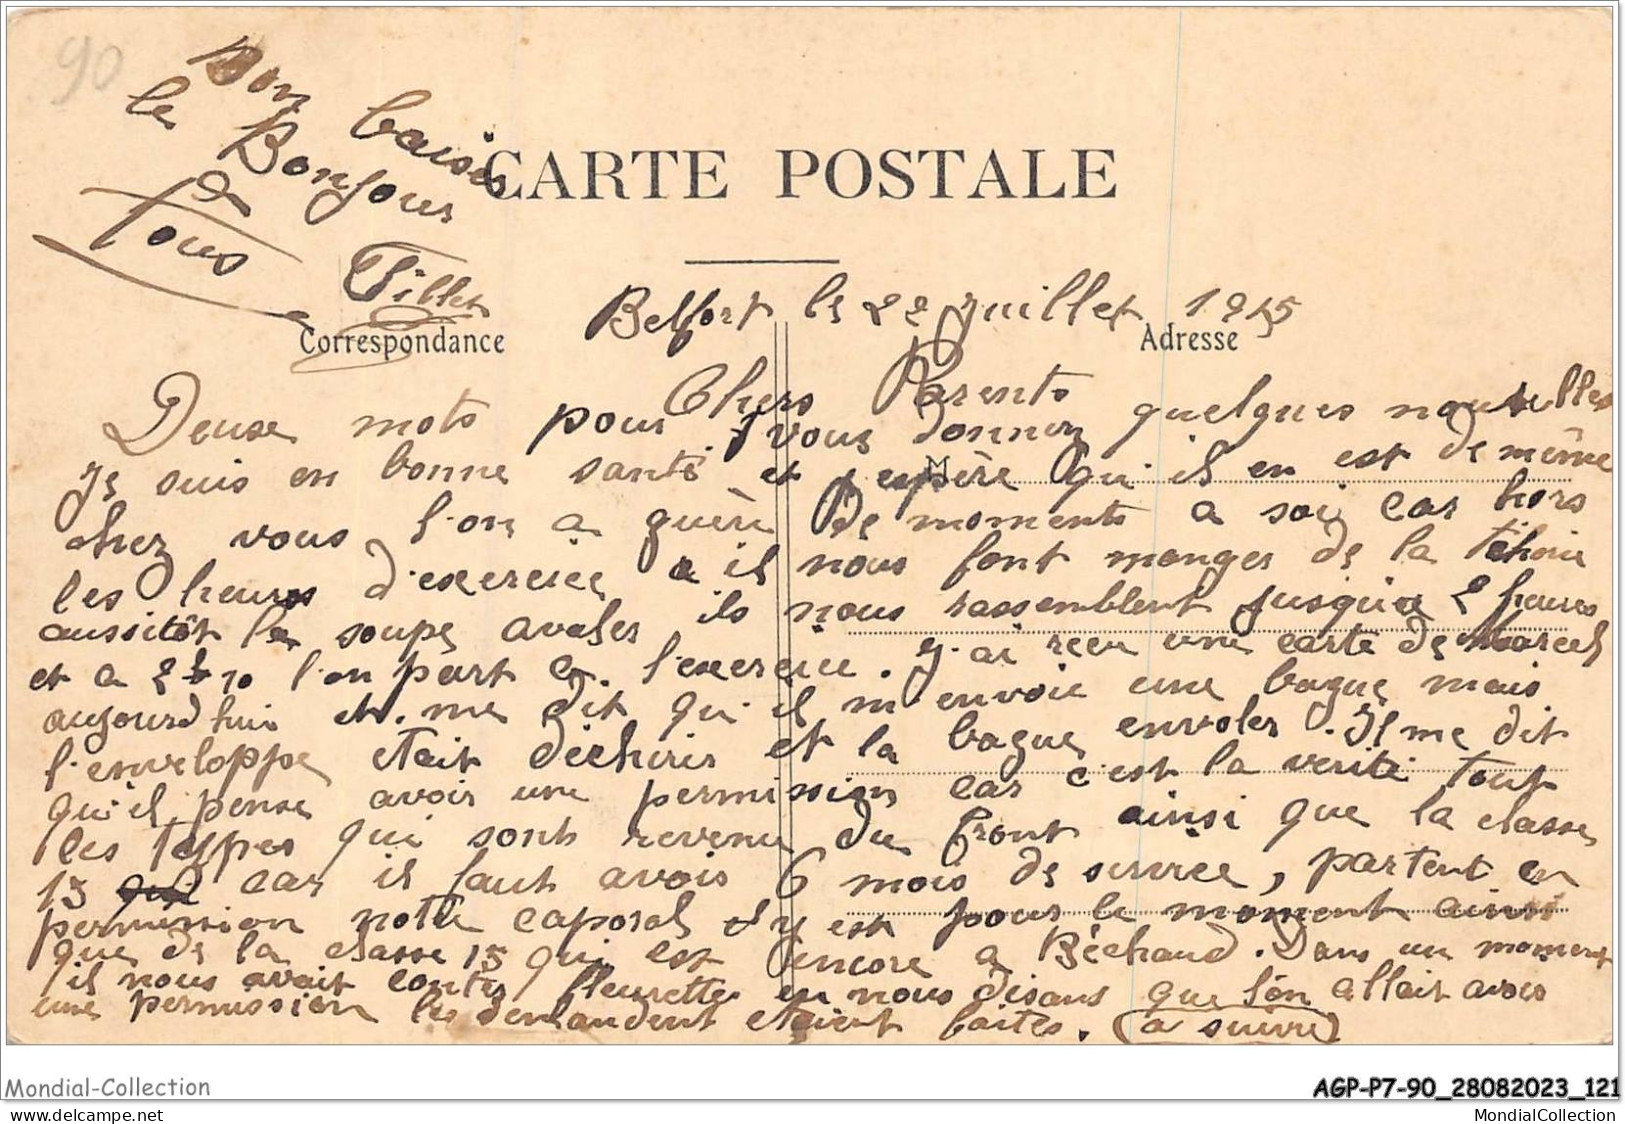 90
Bon baiser
le Bonjour
à
Tous
Tillet
CARTE POSTALE
Correspondance
Adresse
Belfort le 22 juillet 1915
Chers Parents
Deuse mots pour vous donner quelques nouvelles
Je suis en bonne santé et j'espère qu'il en est de même
chez vous l'on a guère de moments a soi car hors
les heures d'exercice il nous font manger de la théorie
aussitôt la soupe avaler ils nous rassemblent jusqu'a 2 heures
et a 2 h 10 l'on part a l'exercice. J'ai recu une carte de Marcel
aujourd'hui et me dit qu'il m'envoie une bague mais
l'enveloppe etait déchirer et la bague envoler. Il me dit
qu'il pense avoir une permission car c'est la verité tout
les types qui sont revenu du front ainsi que la classe
15 car il faut avoir 6 mois de service, partent en
permission notre caporal y est pour le moment ainsi
que de la classe 15 qui est encore a Béchaud. Dans un moment
il nous avait conter fleurette en nous disans que l'on allait avoir
une permission les demandent etaient faites. (a suivre)
Mondial-Collection
AGP-P7-90_28082023_121
MondialCollection